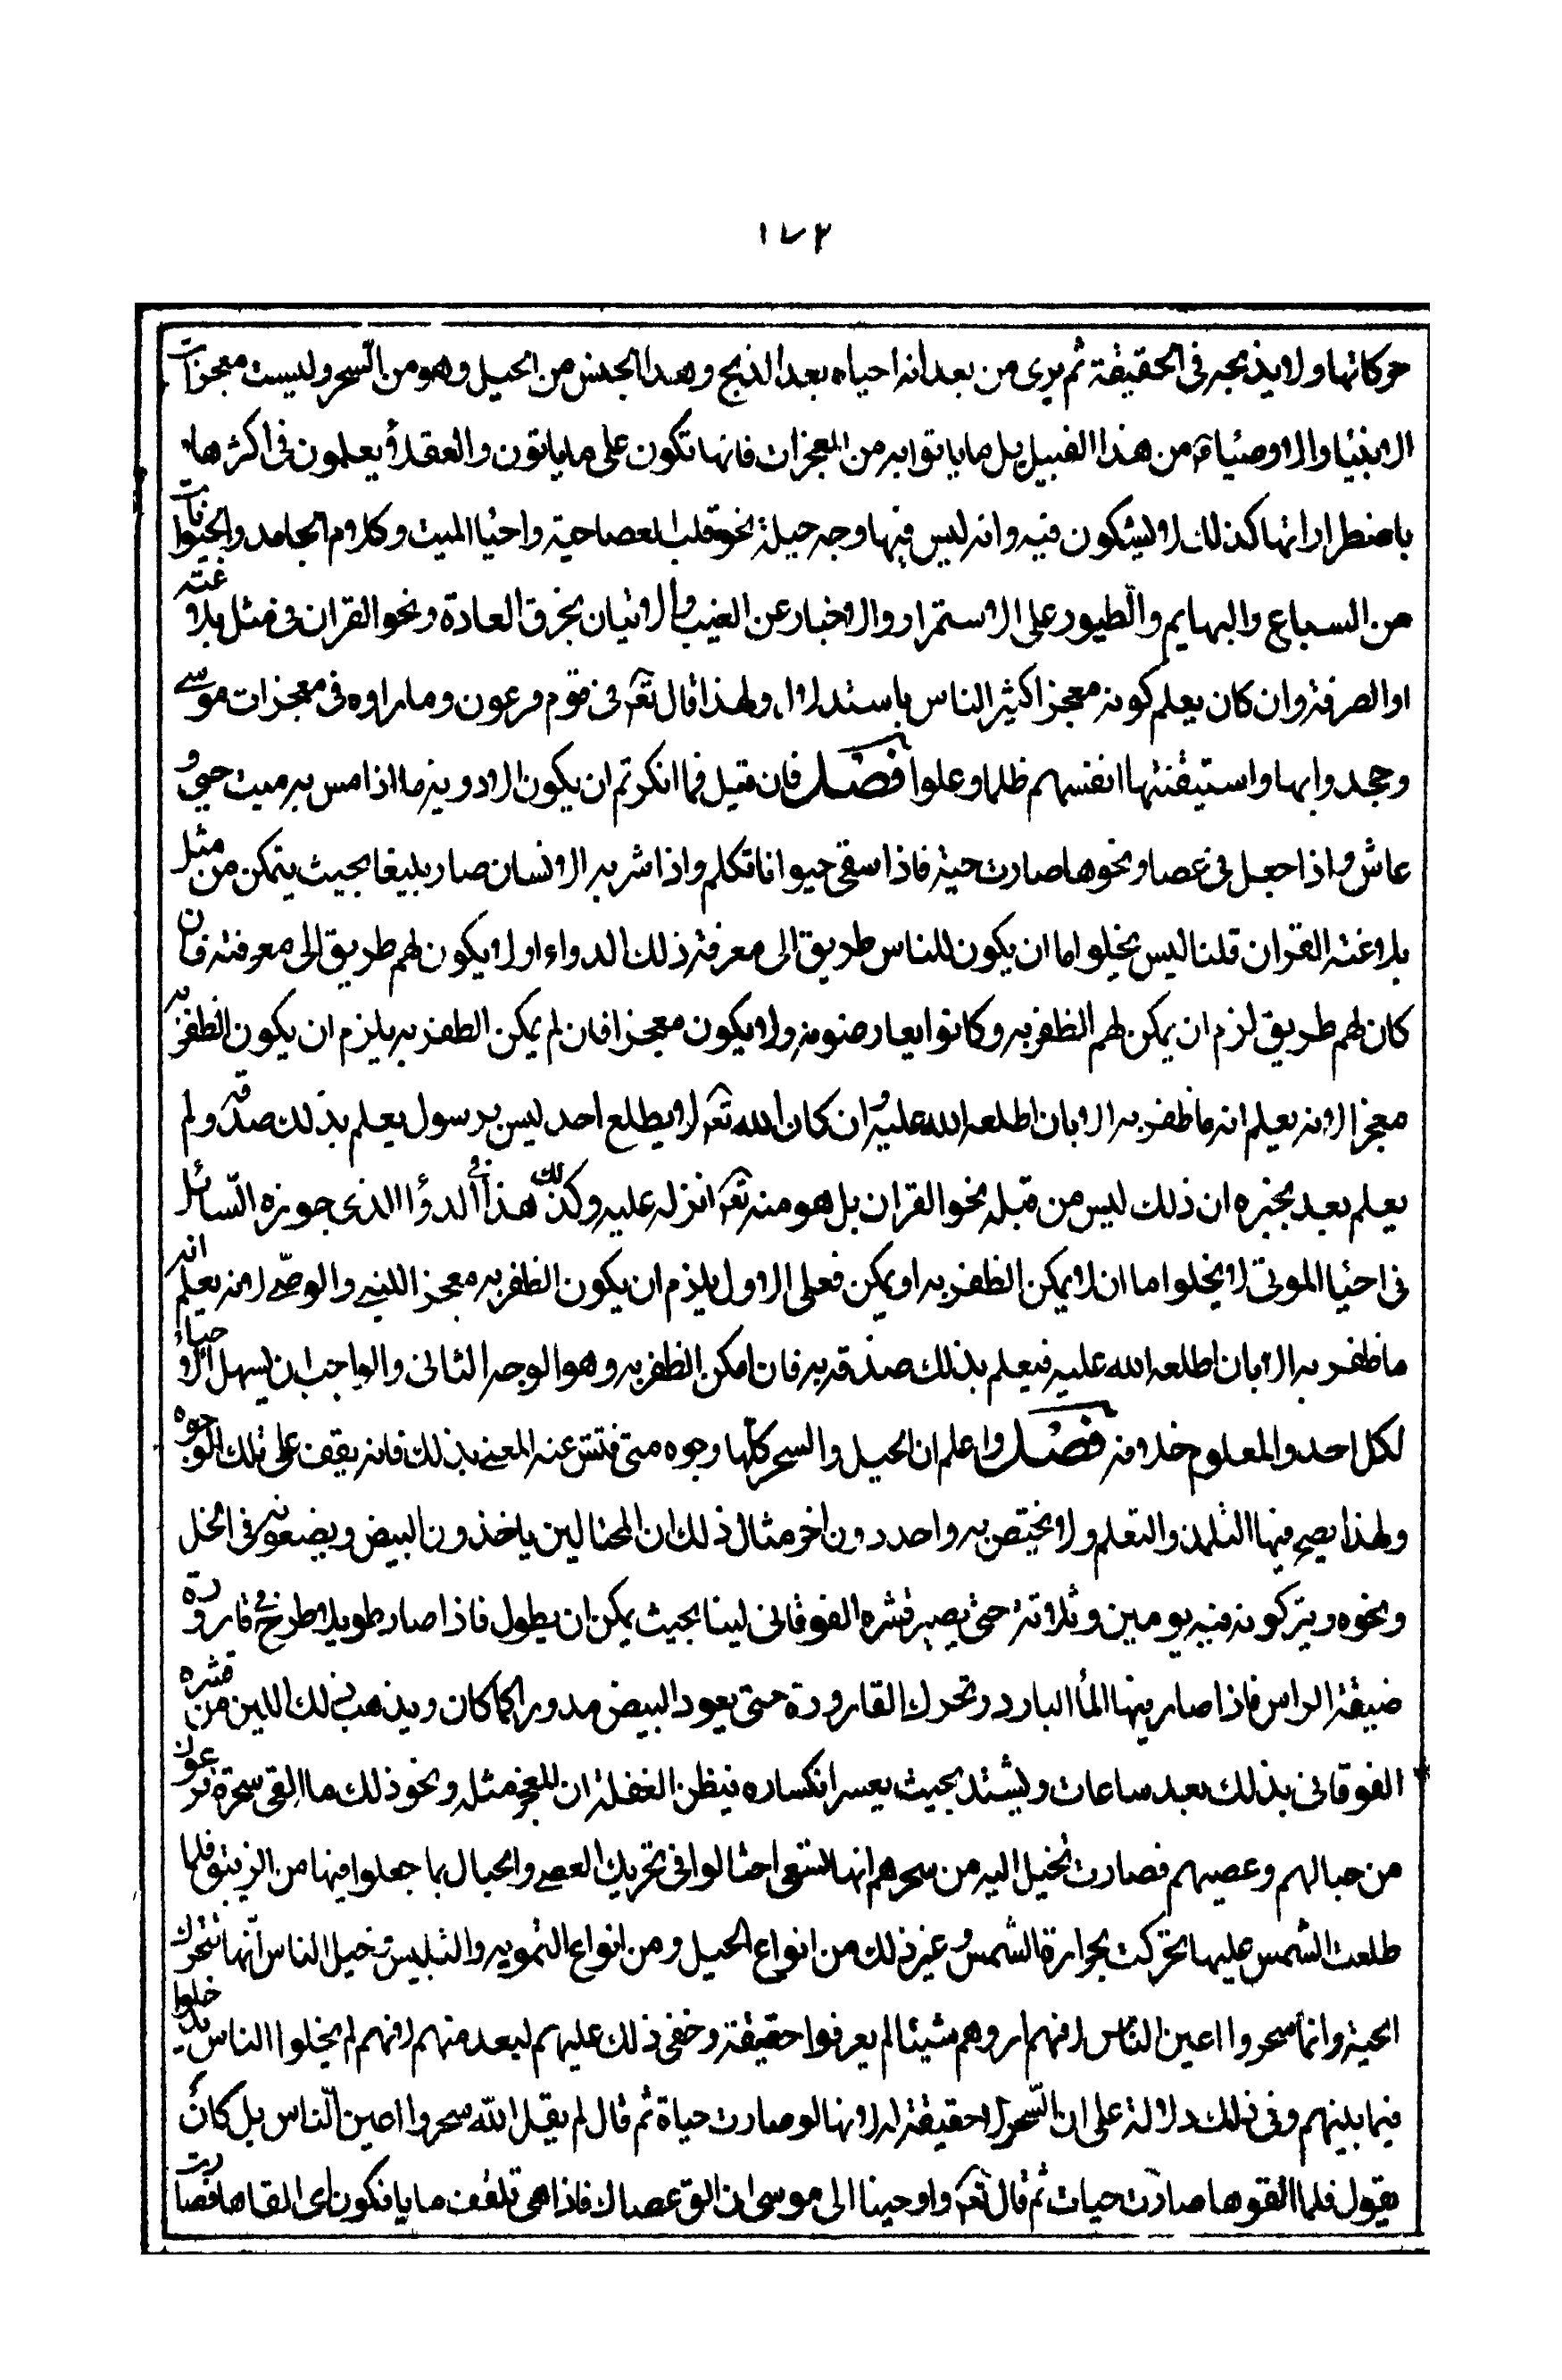 ١٧٢
حركاتها ولا يذبحه في الحقيقة ثم يرى من بعد انه احياه بعد الذبح وهذا الجنس من الحيل وهو من السّحر وليست معجزات
الانبيا والاوصيا من هذا القبيل بل ما ياتوا به من المعجزات فانها تكون على ما ياتون والعقلاء يعلمون في اكثرها
باضطرار انها كذلك لا يشكون فيه وانه ليس فيها وجه حيلة نحو قلب العصا حية واحيا الميت وكلام الجامد والحيوانات
من السباع والبهايم والطيور على الاستمرار والاخبار عن الغيب والاتيان بخرق العادة ونحو القران في مثل بلاغته
او الصرفة وان كان يعلم كونه معجزا كثير الناس باستدلال ولهذا قال تع في قوم فرعون وما راوه في معجزات موسى
وجحدوا بها واستيقنتها انفسهم ظلما وعلوا فصل فان قيل فما انكرتم ان يكون الادوية ما اذا مس به ميت حيي و
عاش واذا جعل في عصا ونحوها صارت حية فاذا سقى حيوانا تكلم واذا شربه الانسان صار بليغا بحيث يتمكن من مثل
بلاغة القران قلنا ليس يخلوا اما ان يكون للناس طريق الى معرفة ذلك الدواء او لا يكون لهم طريق الى معرفته فان
كان لهم طريق لزم ان يمكن لهم الظفر به وكانوا يعارضونه ولا يكون معجزا فان لم يمكن الظفر به يلزم ان يكون الظفر به
معجزا لانه يعلم انه ما ظفر به الا بان اطلعه الله عليه و ان كان الله تع لا يطلع احد ليس برسول يعلم بذلك صدقه ولم
يعلم بعد بخبره ان ذلك ليس من قبله نحو القران بل هو منه تع انزله عليه وكذلك هذا في الدواء الذي جوزه السّائل
في احيا الموتى لا يخلوا اما ان لا يمكن الظفر به او يمكن فعلى الاول يلزم ان يكون الظفر به معجزا للنبي والوصي لانه يعلم انه
ما ظفر به الا بان اطلعه الله عليه فيعلم بذلك صدقه به فان امكن الظفر به وهو الوجه الثاني والواجب ان يسهل الاحياء
لكل احد والمعلوم خلافه فصل واعلم ان الحيل والسحر كلّها وجوه متى فتش عنه المعني بذلك فانه يقف على تلك الوجوه
ولهذا يصح فيها التلمذ والتعلم ولا يختص به واحد دون اخر مثال ذلك ان المحتالين ياخذون البيض ويضعونه في الخل
ونحوه ويتركونه فيه يومين وثلاثة حتى يصير قشره الفوقاني لينا بحيث يمكن ان يطول فاذا صار طويلا طرح في قارورة
ضيقة الراس فاذا صار فيها الماء البارد وتحرك القارورة حتى يعود البيض مدورا كما كان ويذهب ذلك اللين من قشره
الفوقاني بذلك بعد ساعات ويشتد بحيث يعسر انكساره فيظن الغفلة ان المعجز مثله ونحو ذلك ما القى سحرة فرعون
من حبالهم وعصيهم فصارت تخيل اليه من سحرهم انها تسعى احتالوا في تحريك العصي والحبال بما جعلوا فيها من الزيبق فلما
طلعت الشمس عليها تحركت بحرارة الشمس وغير ذلك من انواع الحيل ومن انواع التمويه والتلبيس وخيل الناس انّها تتحرك
الحية وانما سحروا اعين الناس لانهم اروهم شيئا لم يعرفوا حقيقة وخفى ذلك عليهم لبعده منهم لانهم لم يخلوا الناس يدخلوا
فيما بينهم وفي ذلك دلالة على ان السّحر لا حقيقة له لانها لو صارت حياة ثم قال لم يقل الله سحروا اعين النّاس بل كان
يقول فلما القوها صارت حيات ثم قال تع واوحينا الى موسى ان الق عصاك فاذا هي تلقف ما يافكون اى القاها فصارت